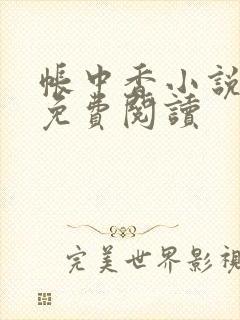 帳中香小說
免費閱讀
完美世界影視